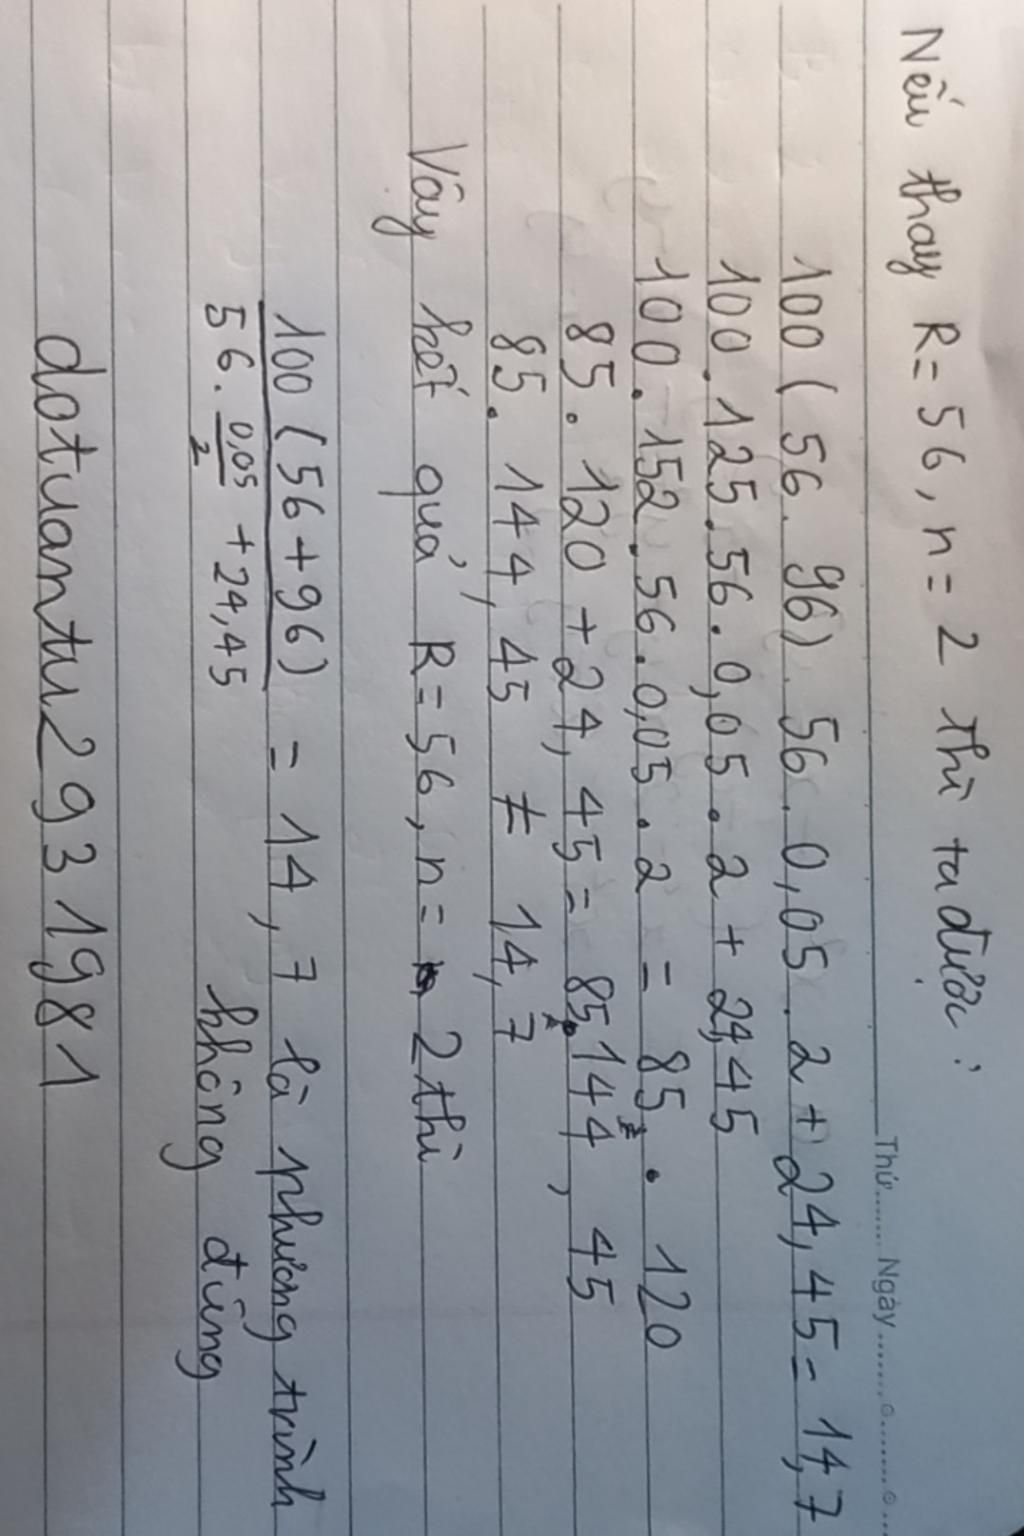 Thứ........ Ngày.............
Nếu thay R=56, n=2 thì ta được:
100(56.96).56.0,05.2+24,45=14,7
100.125.56.0,05.2+24,45
100.152.56.0,05.2=85.120
85.120+24,45=85.144,45
85.144,45≠14,7
Vây kết quả R=56, n=2 thì
100(56+96) = 14,7 là phương trình
56.0,05/2+24,45 không đúng
dotuantu2931981